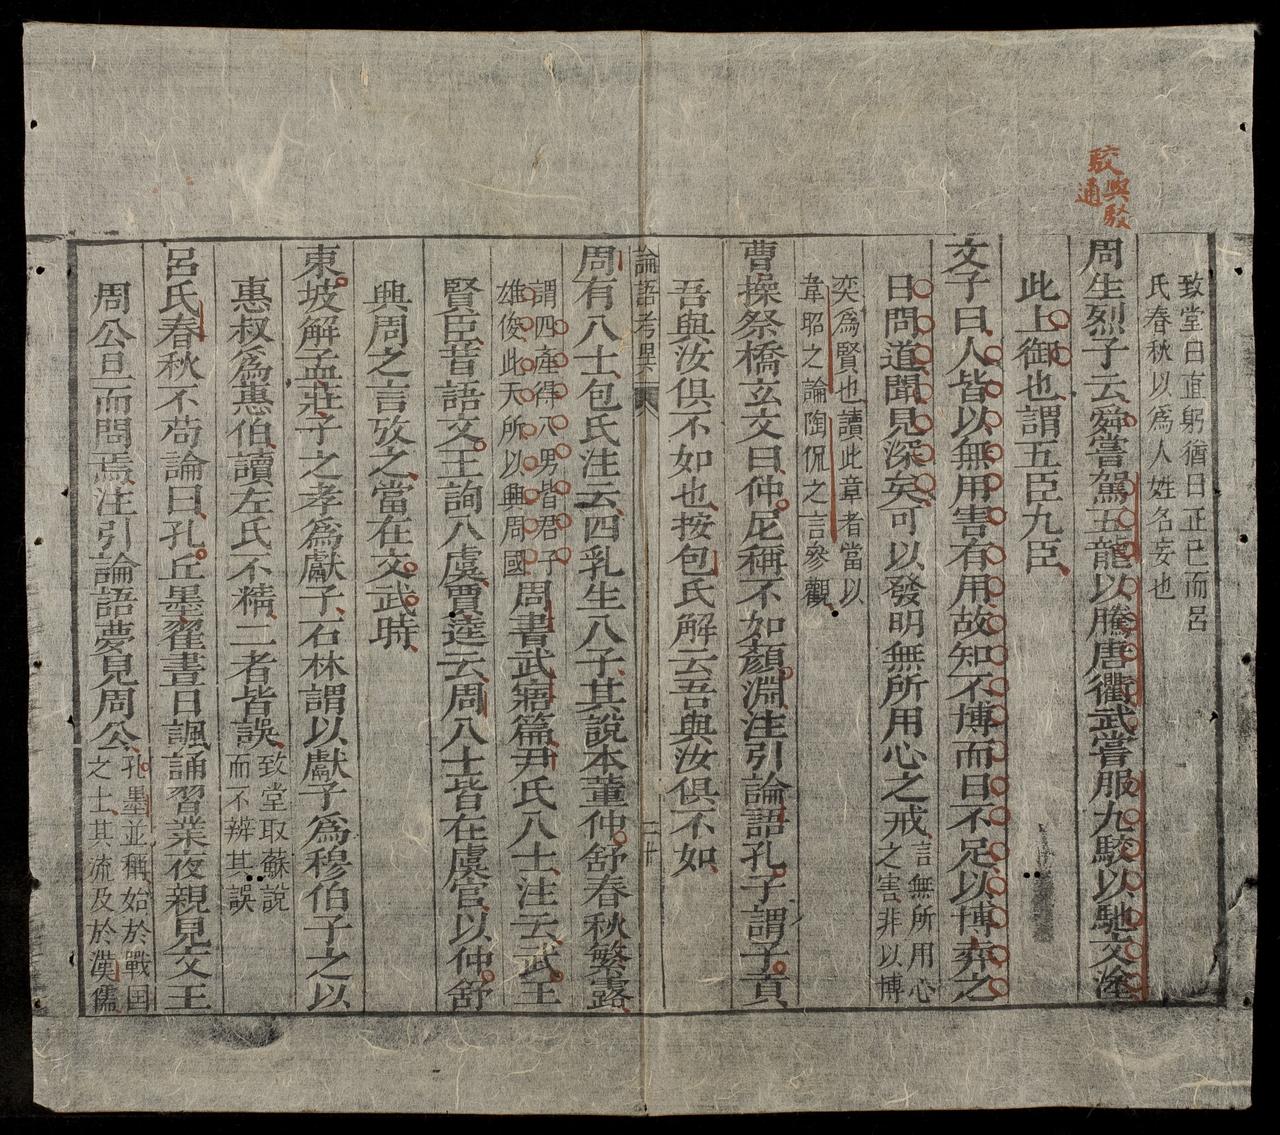 駮與駁
通
致堂曰直躬猶曰正己而呂
氏春秋以爲人姓名妄也
周生烈子云舜嘗駕五龍以騰唐衢武嘗服九駮以馳文塗
此上御也謂五臣九臣
文子曰人皆以無用害有用故知不博而日不足以博弈之
日問道聞見深矣可以發明無所用心之戒言無所用心
之害非以博
奕爲賢也讀此章者當以
韋昭之論陶侃之言參觀
曹操祭橋玄文曰仲尼稱不如顏淵注引論語孔子謂子貢
吾與汝俱不如也按包氏解云吾與汝俱不如
論語考異 二十
周有八士包氏注云四乳生八子其說本董仲舒春秋繁露
謂四產得八男皆君子
雄俊此天所以興周國周書武寤篇尹氏八士注云武王
賢臣晉語文王詢八虞賈逵云周八士皆在虞官以仲舒
興周之言攷之當在文武時
東坡解孟莊子之孝爲獻子石林謂以獻子爲穆伯子之以
惠叔爲惠伯讀左氏不精二者皆誤致堂取蘇說
而不辨其誤
呂氏春秋不苟論曰孔丘墨翟晝日諷誦習業夜親見文王
周公旦而問焉注引論語夢見周公孔墨並稱始於戰国
之士其流及於漢儒